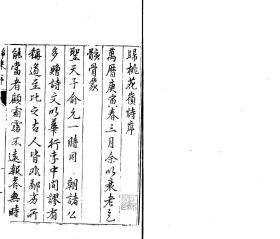 歸桃花嶺詩序
萬曆庚寅春三月余以衰老乞
骸骨蒙
聖天子俞允一時同 朝諸公
多贈詩文以華行李中間謬有
稱道至比之古人皆非鄙劣所
能當者顧兩霄不遠報春無時